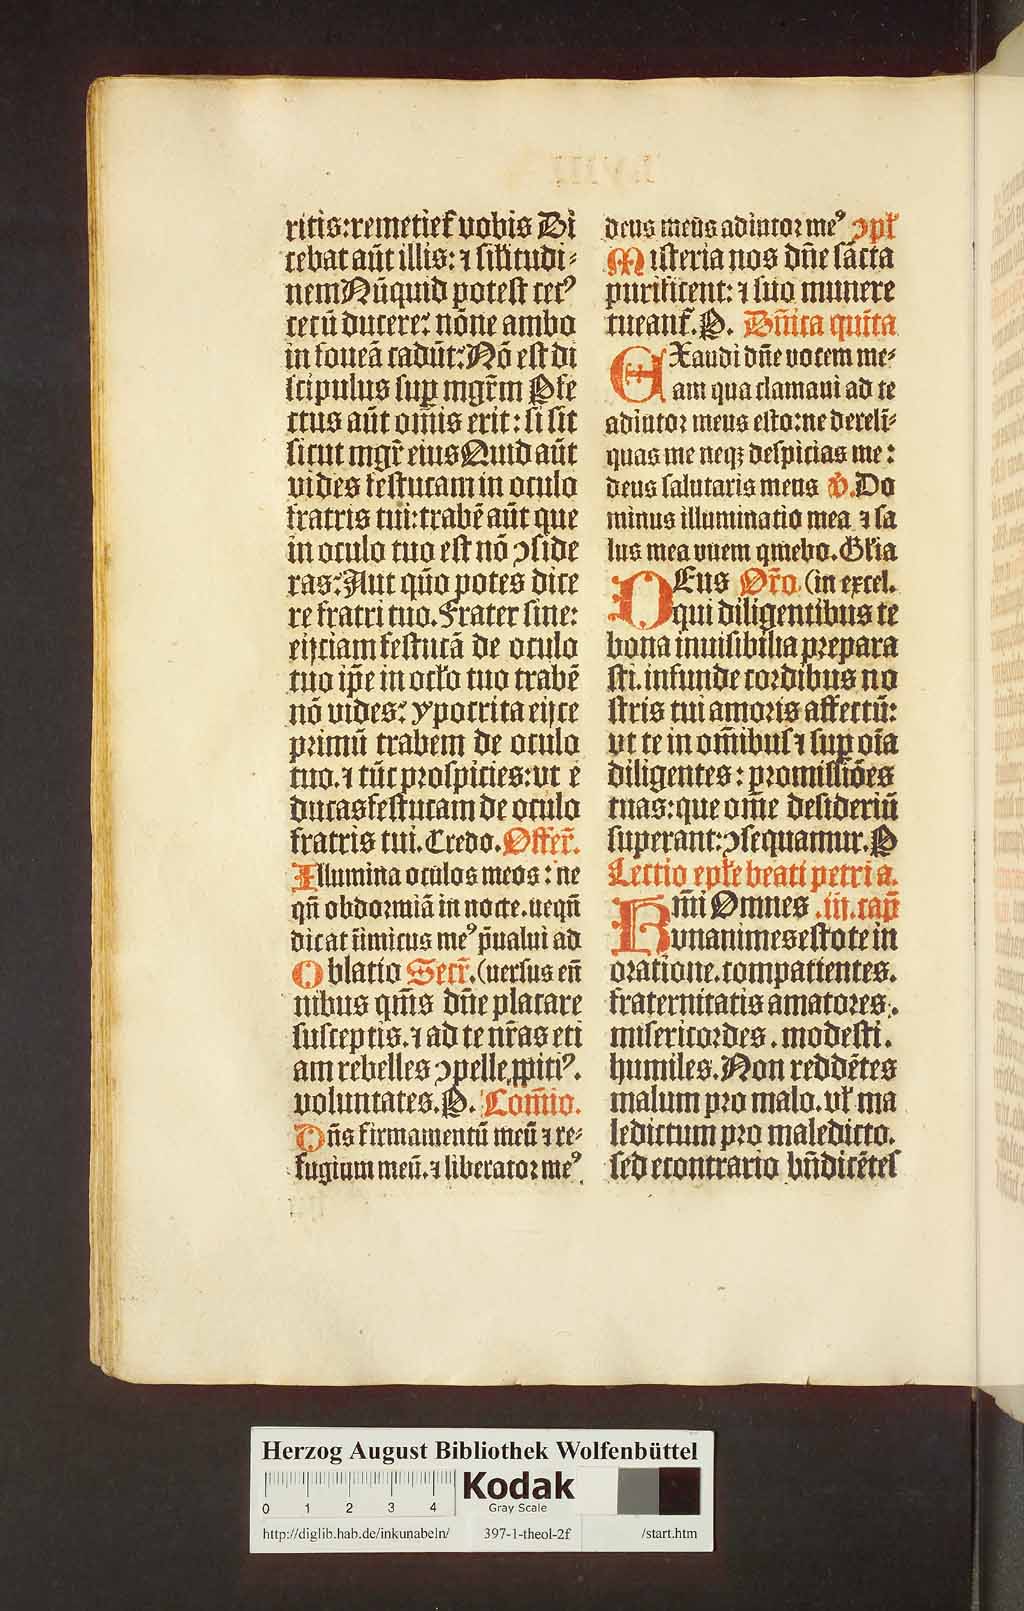 ritis: remetieꝉ uobis Di
cebat aūt illis: ⁊ siłitudi⸗
nem Nūquid potest cecꝰ
cecū ducere: nōne ambo
in foueā cadūt: Nō est di
scipulus sup mgr̄m Pfe
ctus aūt om̄is erit: si sit
sicut mgr̄ eius Quid aūt
uides festucam in oculo
fratris tui: trabē aūt que
in oculo tuo est nō ↄside
ras: Aut qūo potes dice
re fratri tuo. Frater sine:
eijciam festucā de oculo
tuo ip̄e in ocło tuo trabē
nō uides: ypocrita eijce
primū trabem de oculo
tuo. ⁊ tūc prospicies: ut e
ducas festucam de oculo
fratris tui. Credo. Offer̄.
Illumina oculos meos: ne
qn̄ obdormiā in nocte. neqn̄
dicat inimicus meꝰ p̄ualui ad
Oblatio Secr̄. (uersus eū
nibus qm̄s dn̄e placare
susceptis. ⁊ ad te nr̄as eti
am rebelles ↄpelle ꝓpitiꝰ.
voluntates. P. Com̄io.
Dn̄s firmamentū meū ⁊ re⸗
fugium meū. ⁊ liberator meꝰ
deus meus adiutor meꝰ ↄpł
Misteria nos dn̄e sācta
purificent: ⁊ suo munere
tueanꝉ. P. Dn̄ica quīta
EXaudi dn̄e uocem me⸗
am qua clamaui ad te
adiutor meus esto: ne dereli̅⸗
quas me neqꝫ despicias me:
deus salutaris meus V. Do
minus illuminatio mea ⁊ sa
lus mea quem timebo. Głia
DEus Or̄o (in excel.
qui diligentibus te
bona inuisibilia prepara
sti. infunde cordibus no
stris tui amoris affectū:
ut te in om̄ibus ⁊ sup oīa
diligentes: promissiōes
tuas: que om̄e desideriū
superant: ↄsequamur. P
Lectio epłe beati petri a.
Kmi Omnes .iii. cap̄
vnanimes estote in
oratione. compatientes.
fraternitatis amatores.
misericordes. modesti.
humiles. Non reddētes
malum pro malo. vł ma
ledictum pro maledicto.
sed econtrario bn̄dicētes
Herzog August Bibliothek Wolfenbüttel
0 1 2 3 4
Kodak
Gray Scale
http://diglib.hab.de/inkunabeln/ 397-1-theol-2f /start.htm